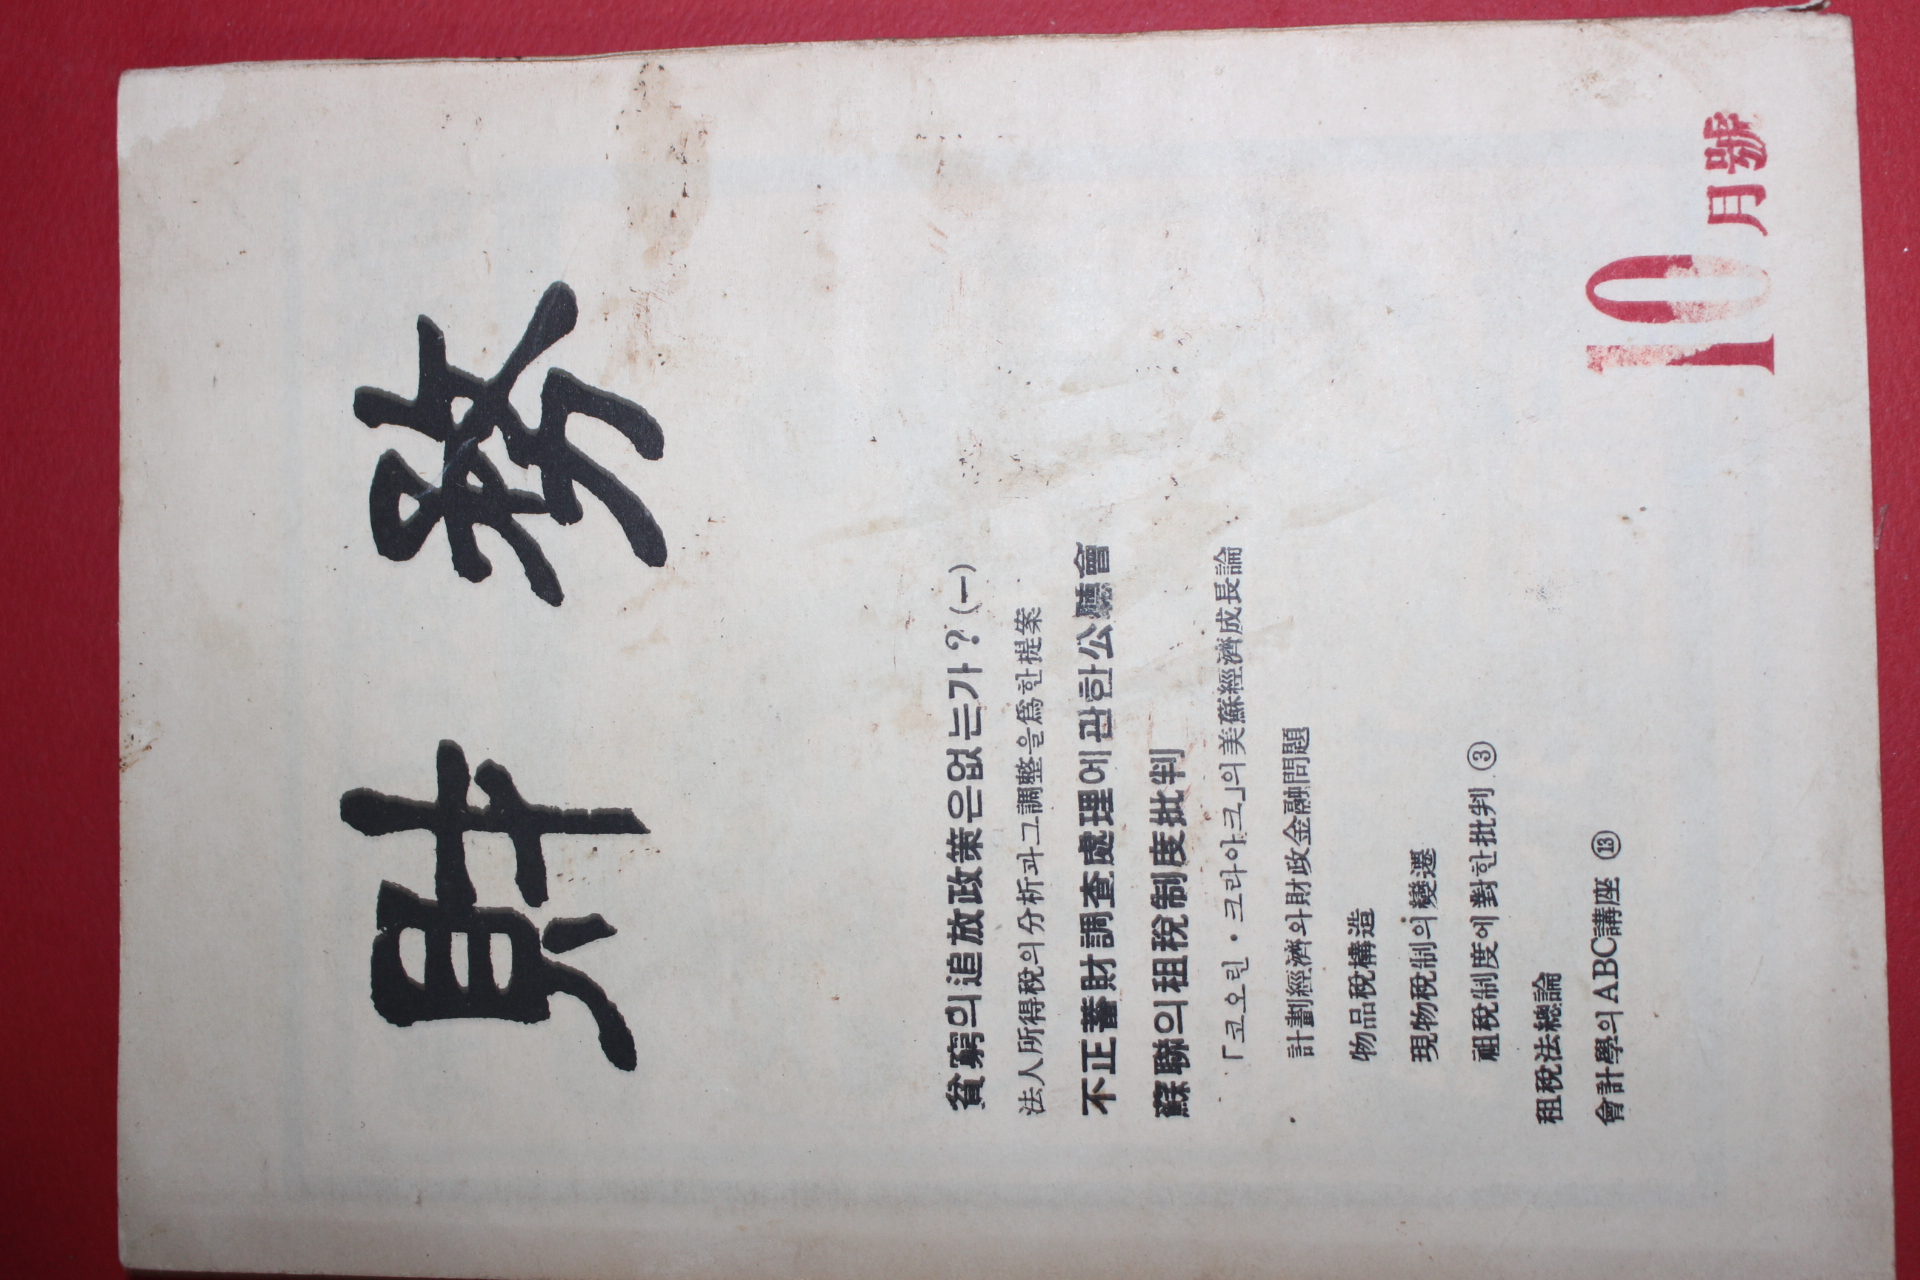 財務
貧窮의追放政策은없는가?(一)
法人所得稅의分析과그調整을爲한提案
不正蓄財調查處理에관한公聽會
蘇聯의租稅制度批判
「코오린·크라아크」의美蘇經濟成長論
計劃經濟와財政金融問題
物品稅構造
現物稅制의變遷
祖稅制度에對한批判③
租稅法總論
會計學의ABC講座⑬
10月號